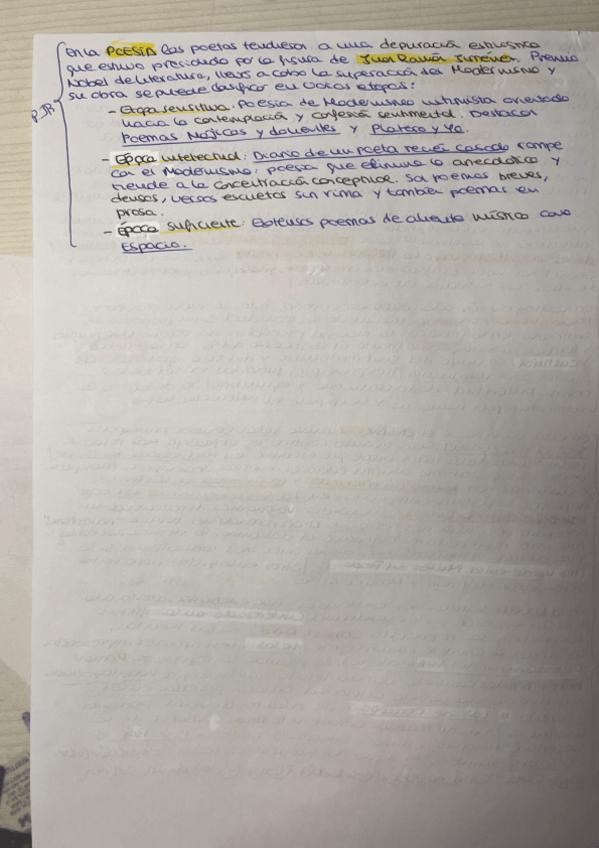 En la POESÍA los poetas tendieron a una depuración estilística
que estuvo presidida por la figura de Juan Ramón Jiménez. Premio
Nobel de Literatura, llevó a cabo la superación del Modernismo y
su obra se puede clasificar en varias etapas:
- Etapa sensitiva. Poesía de Modernismo intimista orientado
hacia la contemplación y confesión sentimental. Destacan
Poemas Mágicos y dolientes y Platero y Yo.
- Época intelectual: Diario de un poeta recién casado rompe
con el Modernismo, poesía que elimina lo anecdótico y
tiende a la concentración conceptual. Son poemas breves,
densos, versos escuetos sin rima y también poemas en
prosa.
- Época suficiente: Extensos poemas de aliento místico como
Espacio.